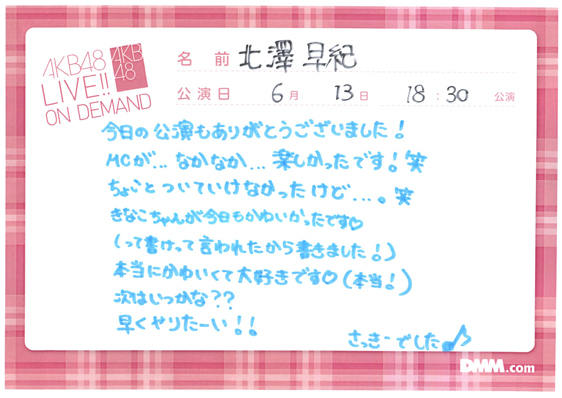 AKB48
LIVE!!
ON DEMAND
AKB
48
名前 北澤早紀
公演日 6月 13日 18:30 公演
今日の公演もありがとうございました!
MCが...なかなか...楽しかったです!笑
ちょこっとついていけなかったけど...。笑
きなこちゃんが今日もかわいかったです♡
(って書けって言われたから書きました!)
本当にかわいくて大好きです♡(本当!)
次はいつかな??
早くやりたーい!!
さっきーでした♪
DMM.com